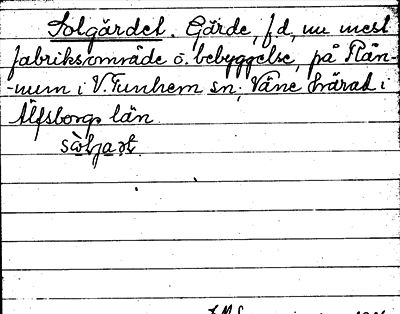 Solgärdet. Gärde, f.d., nu mest
fabriksområde o. bebyggelse, på Rän-
-num i V. Tunhem sn; Väne härad i
Älfsborgs län